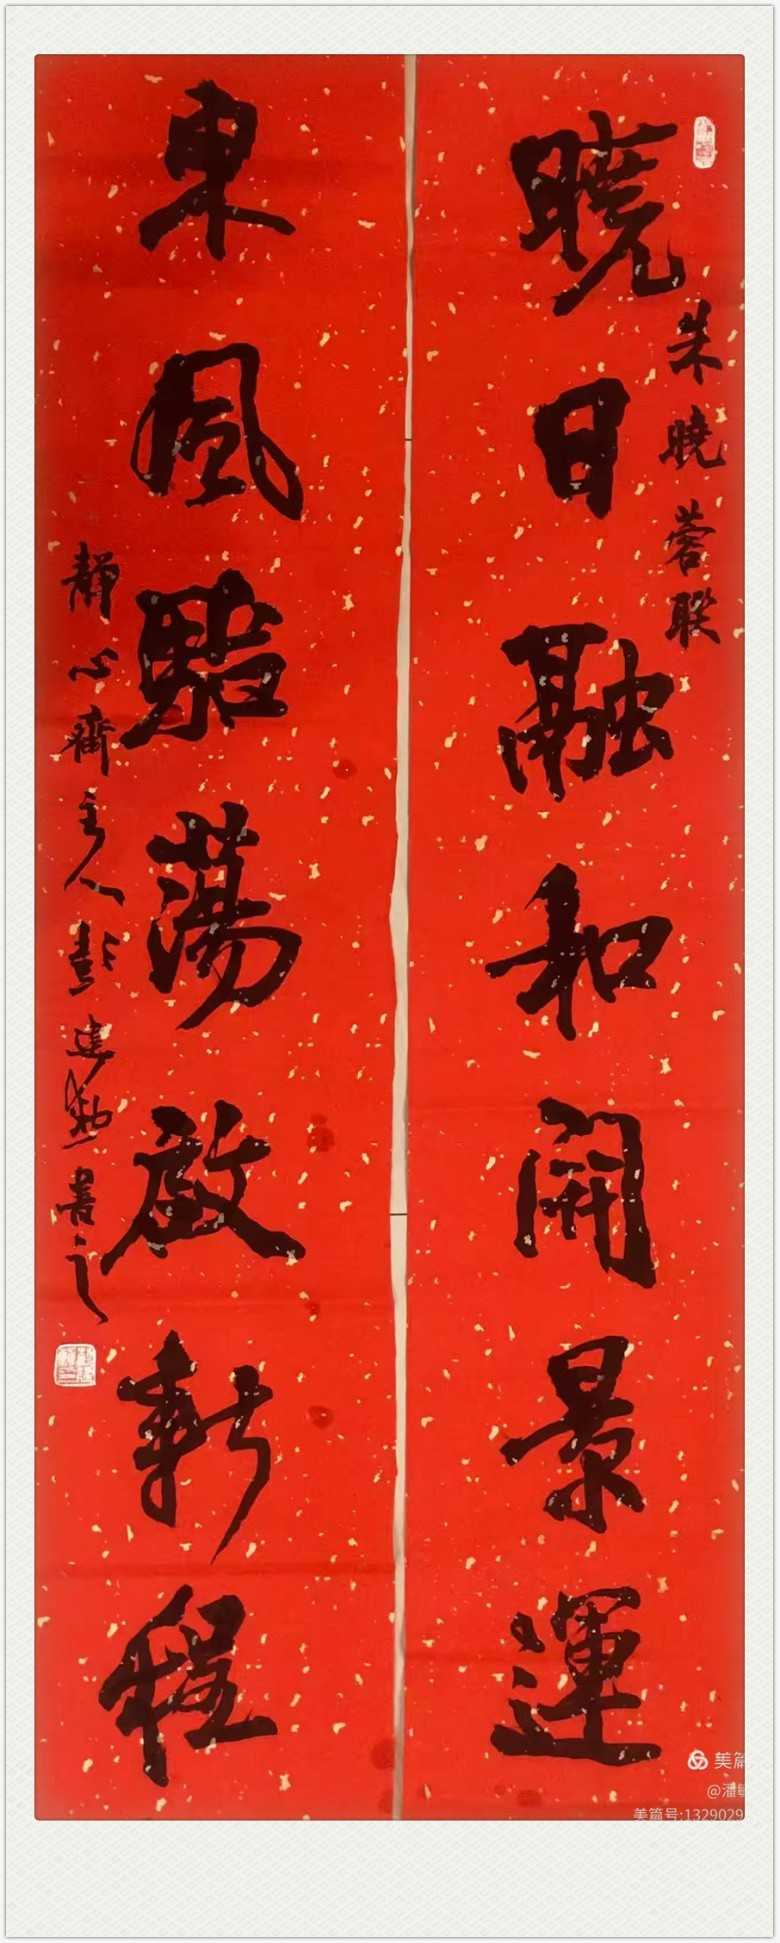 曉日融和開景運
朱曉蓉联
東風駘蕩啟新程
靜心齋主人彭建勋書之
美篇
@潘敏
美篇号:1329029